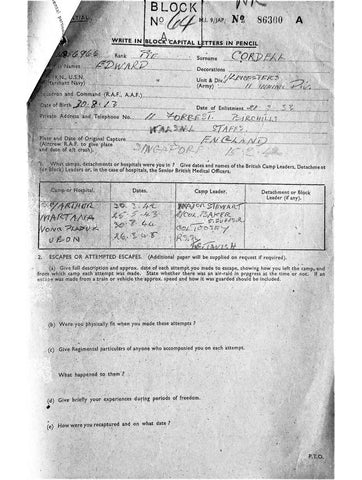 BLOCK
No 64 M.I. 9/JAP/ No 86300 A
A
WRITE IN BLOCK CAPITAL LETTERS IN PENCIL
Rank PTE Surname CORDELL
Names EDWARD Decorations
R.N., U.S.N. Unit & Div. LEICESTERS
Merchant Navy) (Army) 11 INDIAN DIV.
Squadron and Command (R.A.F., A.A.F.)
Date of Birth 30-8-13 Date of Enlistment
Private Address and Telephone No. 11 FORREST BIRCHILLS
WALSALL STAFFS.
Place and Date of Original Capture ENGLAND
(Aircrew R.A.F. to give place SINGAPORE
and date of a/c crash).
1. What camps, detachments or hospitals were you in? Give dates and names of the British Camp Leaders, Detachment
or Block Leaders or, in the case of hospitals, the Senior British Medical Officers.
Camp or Hospital. Dates. Camp Leader. Detachment or Block
Leader (if any).
MAJOR STEWART
25-5-43 COL BAKER
30-8-44
UBON
2. ESCAPES OR ATTEMPTED ESCAPES. (Additional paper will be supplied on request if required).
(a) Give full description and approx. date of each attempt you made to escape, showing how you left the camp, and
from which camp each attempt was made. State whether there was an air-raid in progress at the time or not. If an
escape was made from a train or vehicle the approx. speed and how it was guarded should be included.
(b) Were you physically fit when you made these attempts?
(c) Give Regimental particulars of anyone who accompanied you on each attempt.
What happened to them?
(d) Give briefly your experiences during periods of freedom.
(e) How were you recaptured and on what date?
P.T.O.